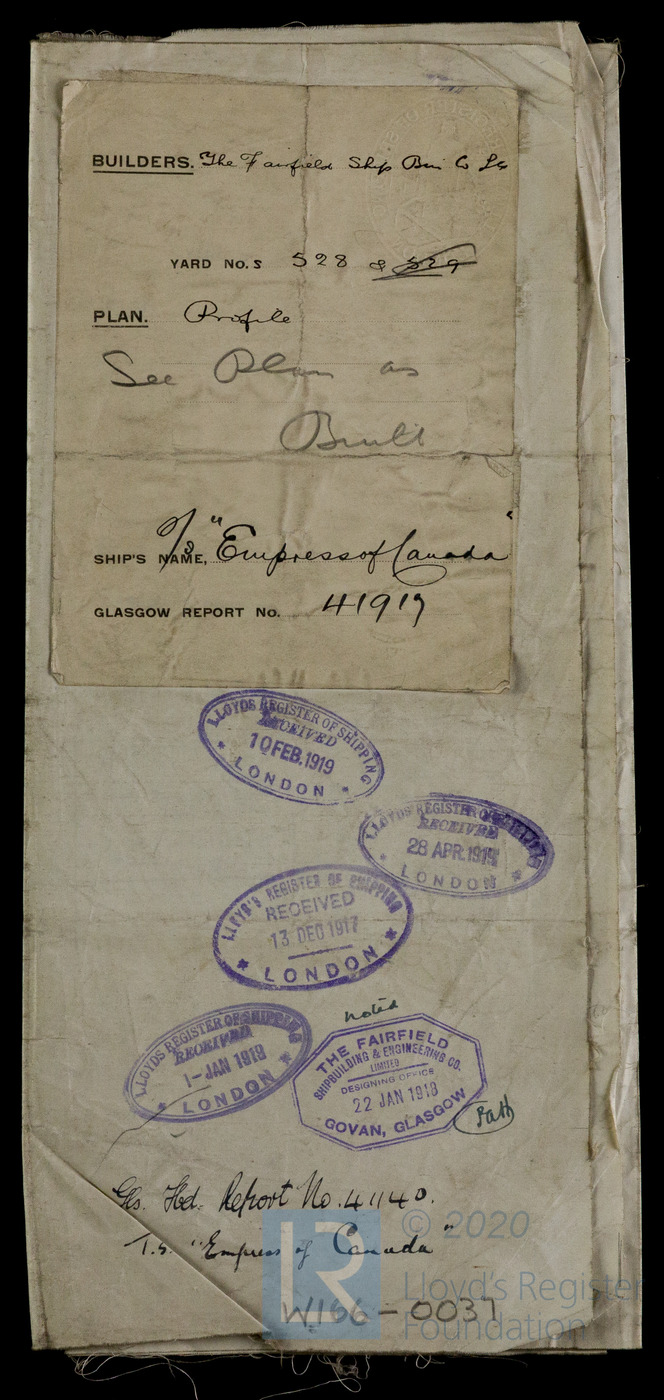 BUILDERS. The Fairfield Ship Co Ld
YARD No.s 528 & 529
PLAN. Profile
See Plan as
Built
SHIP'S NAME, S/S "Empress of Canada"
GLASGOW REPORT No. 41917
LLOYDS REGISTER OF SHIPPING
RECEIVED
10 FEB. 1919
LONDON
LLOYDS REGISTER OF SHIPPING
RECEIVED
28 APR.
LONDON
LLOYD'S REGISTER OF SHIPPING
RECEIVED
13 DEC 1917
LONDON
LLOYDS REGISTER OF SHIPPING
RECEIVED
1-JAN 1918
LONDON
noted
THE FAIRFIELD
SHIPBUILDING & ENGINEERING CO.
LIMITED
DESIGNING OFFICE
22 JAN 1918
GOVAN, GLASGOW
Gls. Hd. Report No. 41140.
T.S. "Empress of Canada"
W166-0037
LR
© 2020
Lloyd's Register
Foundation